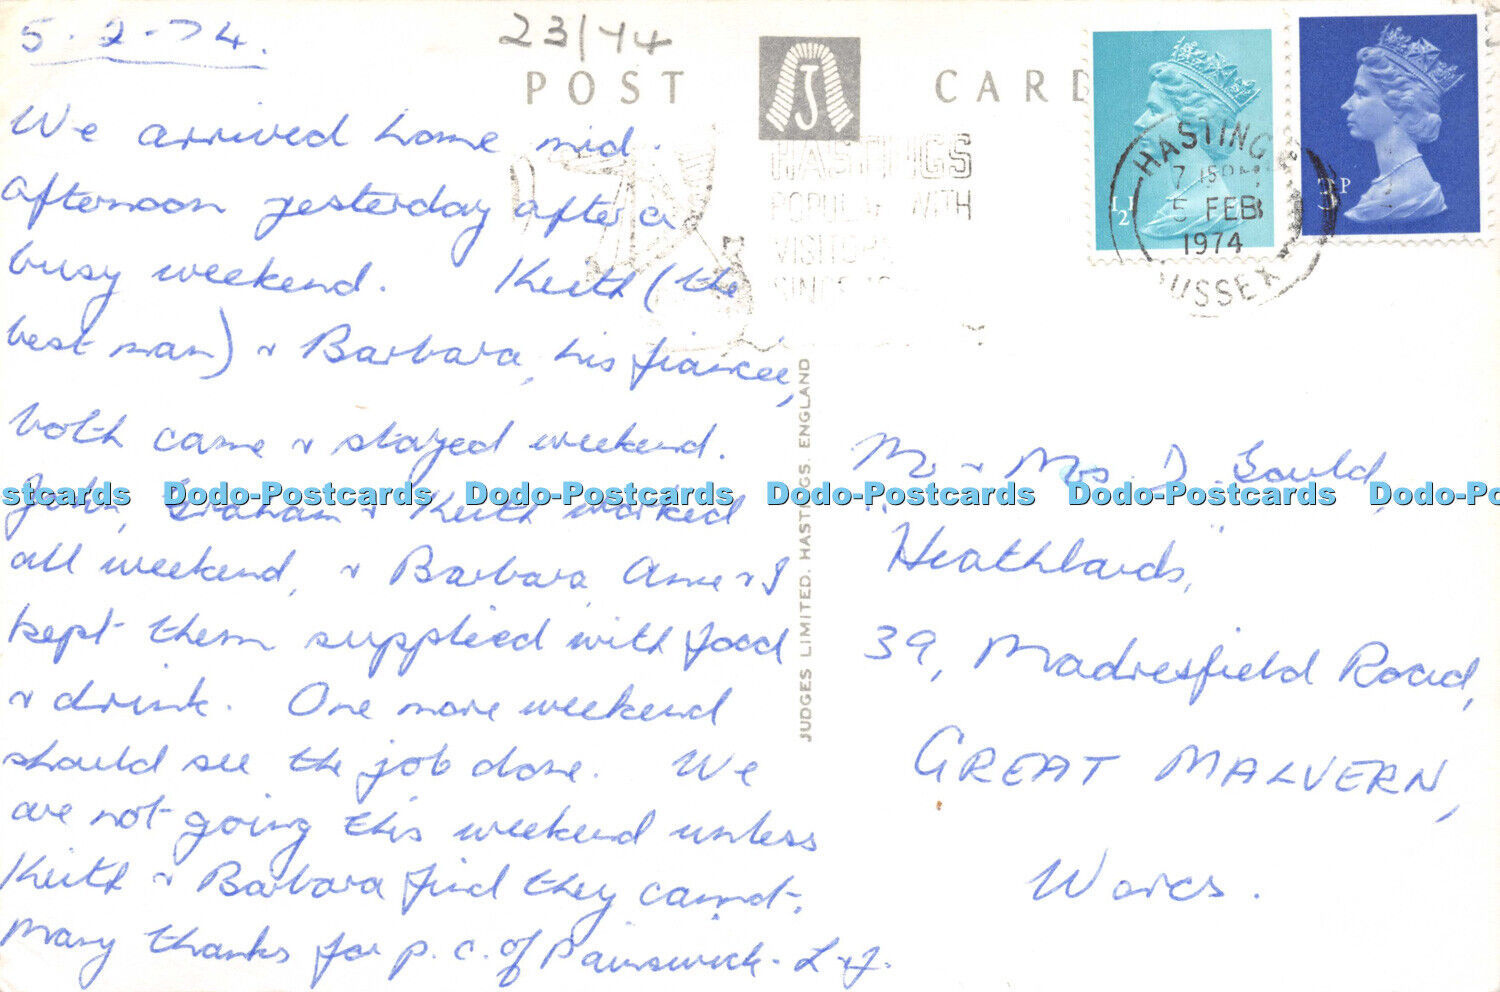 5-2-74.
23/44
POST CARD
J
HASTINGS
POPULAR WITH
VISITORS
SINCE
HASTINGS
7 15PM
5 FEB
1974
SUSSEX
½P
3P
We arrived home mid-
afternoon yesterday after a
busy weekend. Keith (the
best man) & Barbara, his fiancee,
both came & stayed weekend.
John, Graham & Keith worked
all weekend, & Barbara, Anne & I
kept them supplied with food
& drink. One more weekend
should see the job done. We
are not going this weekend unless
Keith & Barbara find they cannot.
Many thanks for p.c. of Painswick. L & J.
JUDGES LIMITED, HASTINGS, ENGLAND
Mr & Mrs D. Gould,
"Heathlands",
39, Madresfield Road,
GREAT MALVERN,
Worcs.
stcards Dodo-Postcards Dodo-Postcards Dodo-Postcards Dodo-Postcards Dodo-Po